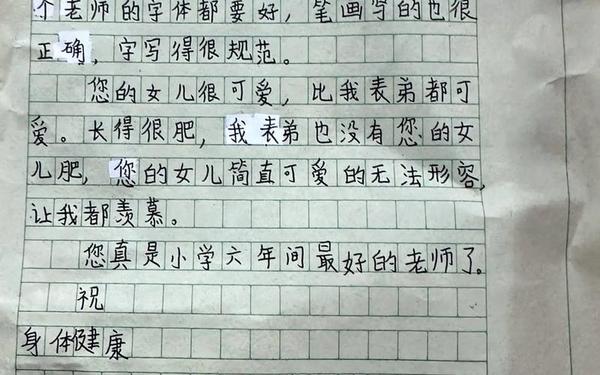 个老师的字体都要好，笔画写的也很
正确，字写得很规范。
您的女儿很可爱，比我表弟都可
爱。长得很肥，我表弟也没有您的女
儿肥，您的女儿简直可爱的无法形容，
让我都羡慕。
您真是小学六年间最好的老师了。
祝
身体健康